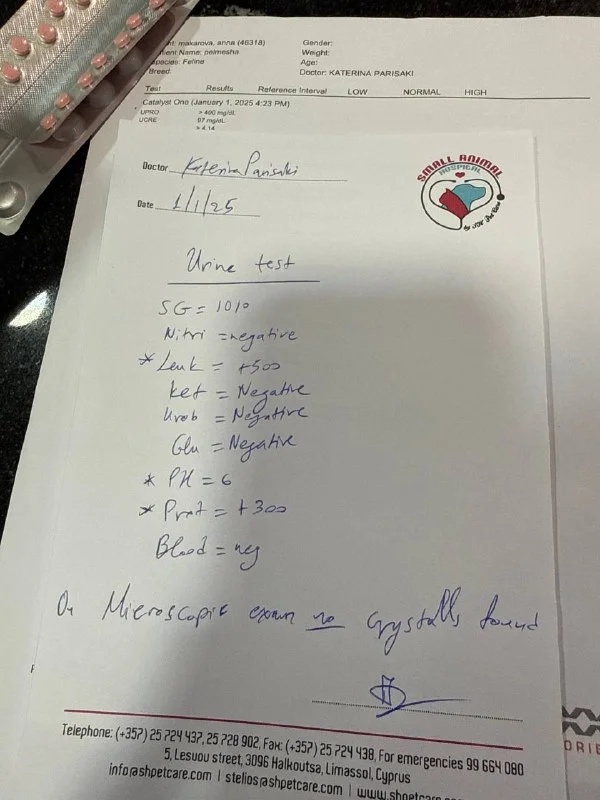 nt: makarova, anna (46318)
Gender:
ient Name: pelmesha
Weight:
Species: Feline
Age:
Breed:
Doctor: KATERINA PARISAKI
Test Results Reference Interval LOW NORMAL HIGH
Catalyst One (January 1, 2025 4:23 PM)
UPRO > 400 mg/dL
UCRE 97 mg/dL
> 4.14
Doctor Katerina Parisaki
SMALL ANIMAL
HOSPITAL
Date 1/1/25
Urine test
SG = 1010
Nitri = negative
* Leuk = +500
ket = Negative
Urob = Negative
Glu = Negative
* PH = 6
* Prot = +300
Blood = neg
On Microscopic exam no crystalls found
Telephone: (+357) 25 724 437, 25 728 902, Fax: (+357) 25 724 438, For emergencies 99 664 080
5, Lesuou street, 3096 Halkoutsa, Limassol, Cyprus
info@shpetcare.com | stelios@shpetcare.com | www.shpetcare.com
DRIE